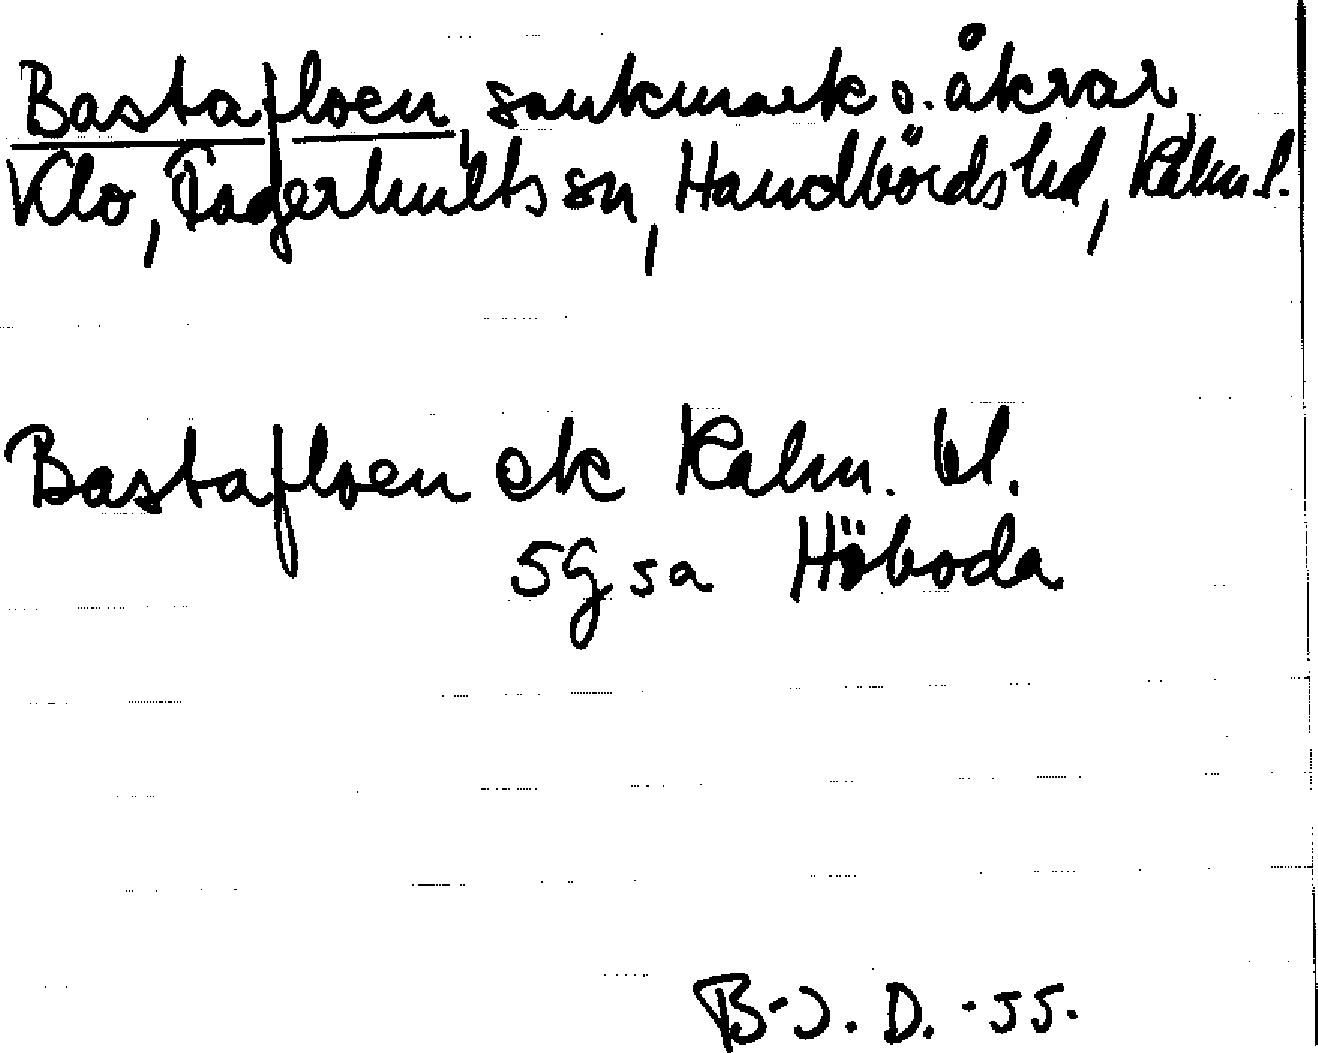 Bastafloen sankmark o. åkrar
Klo, Fagerhults sn, Handbörds hd, Kalm. l.
Bastafloen ek Kalm. bl.
5G sa Höboda
B-J. D. -55.